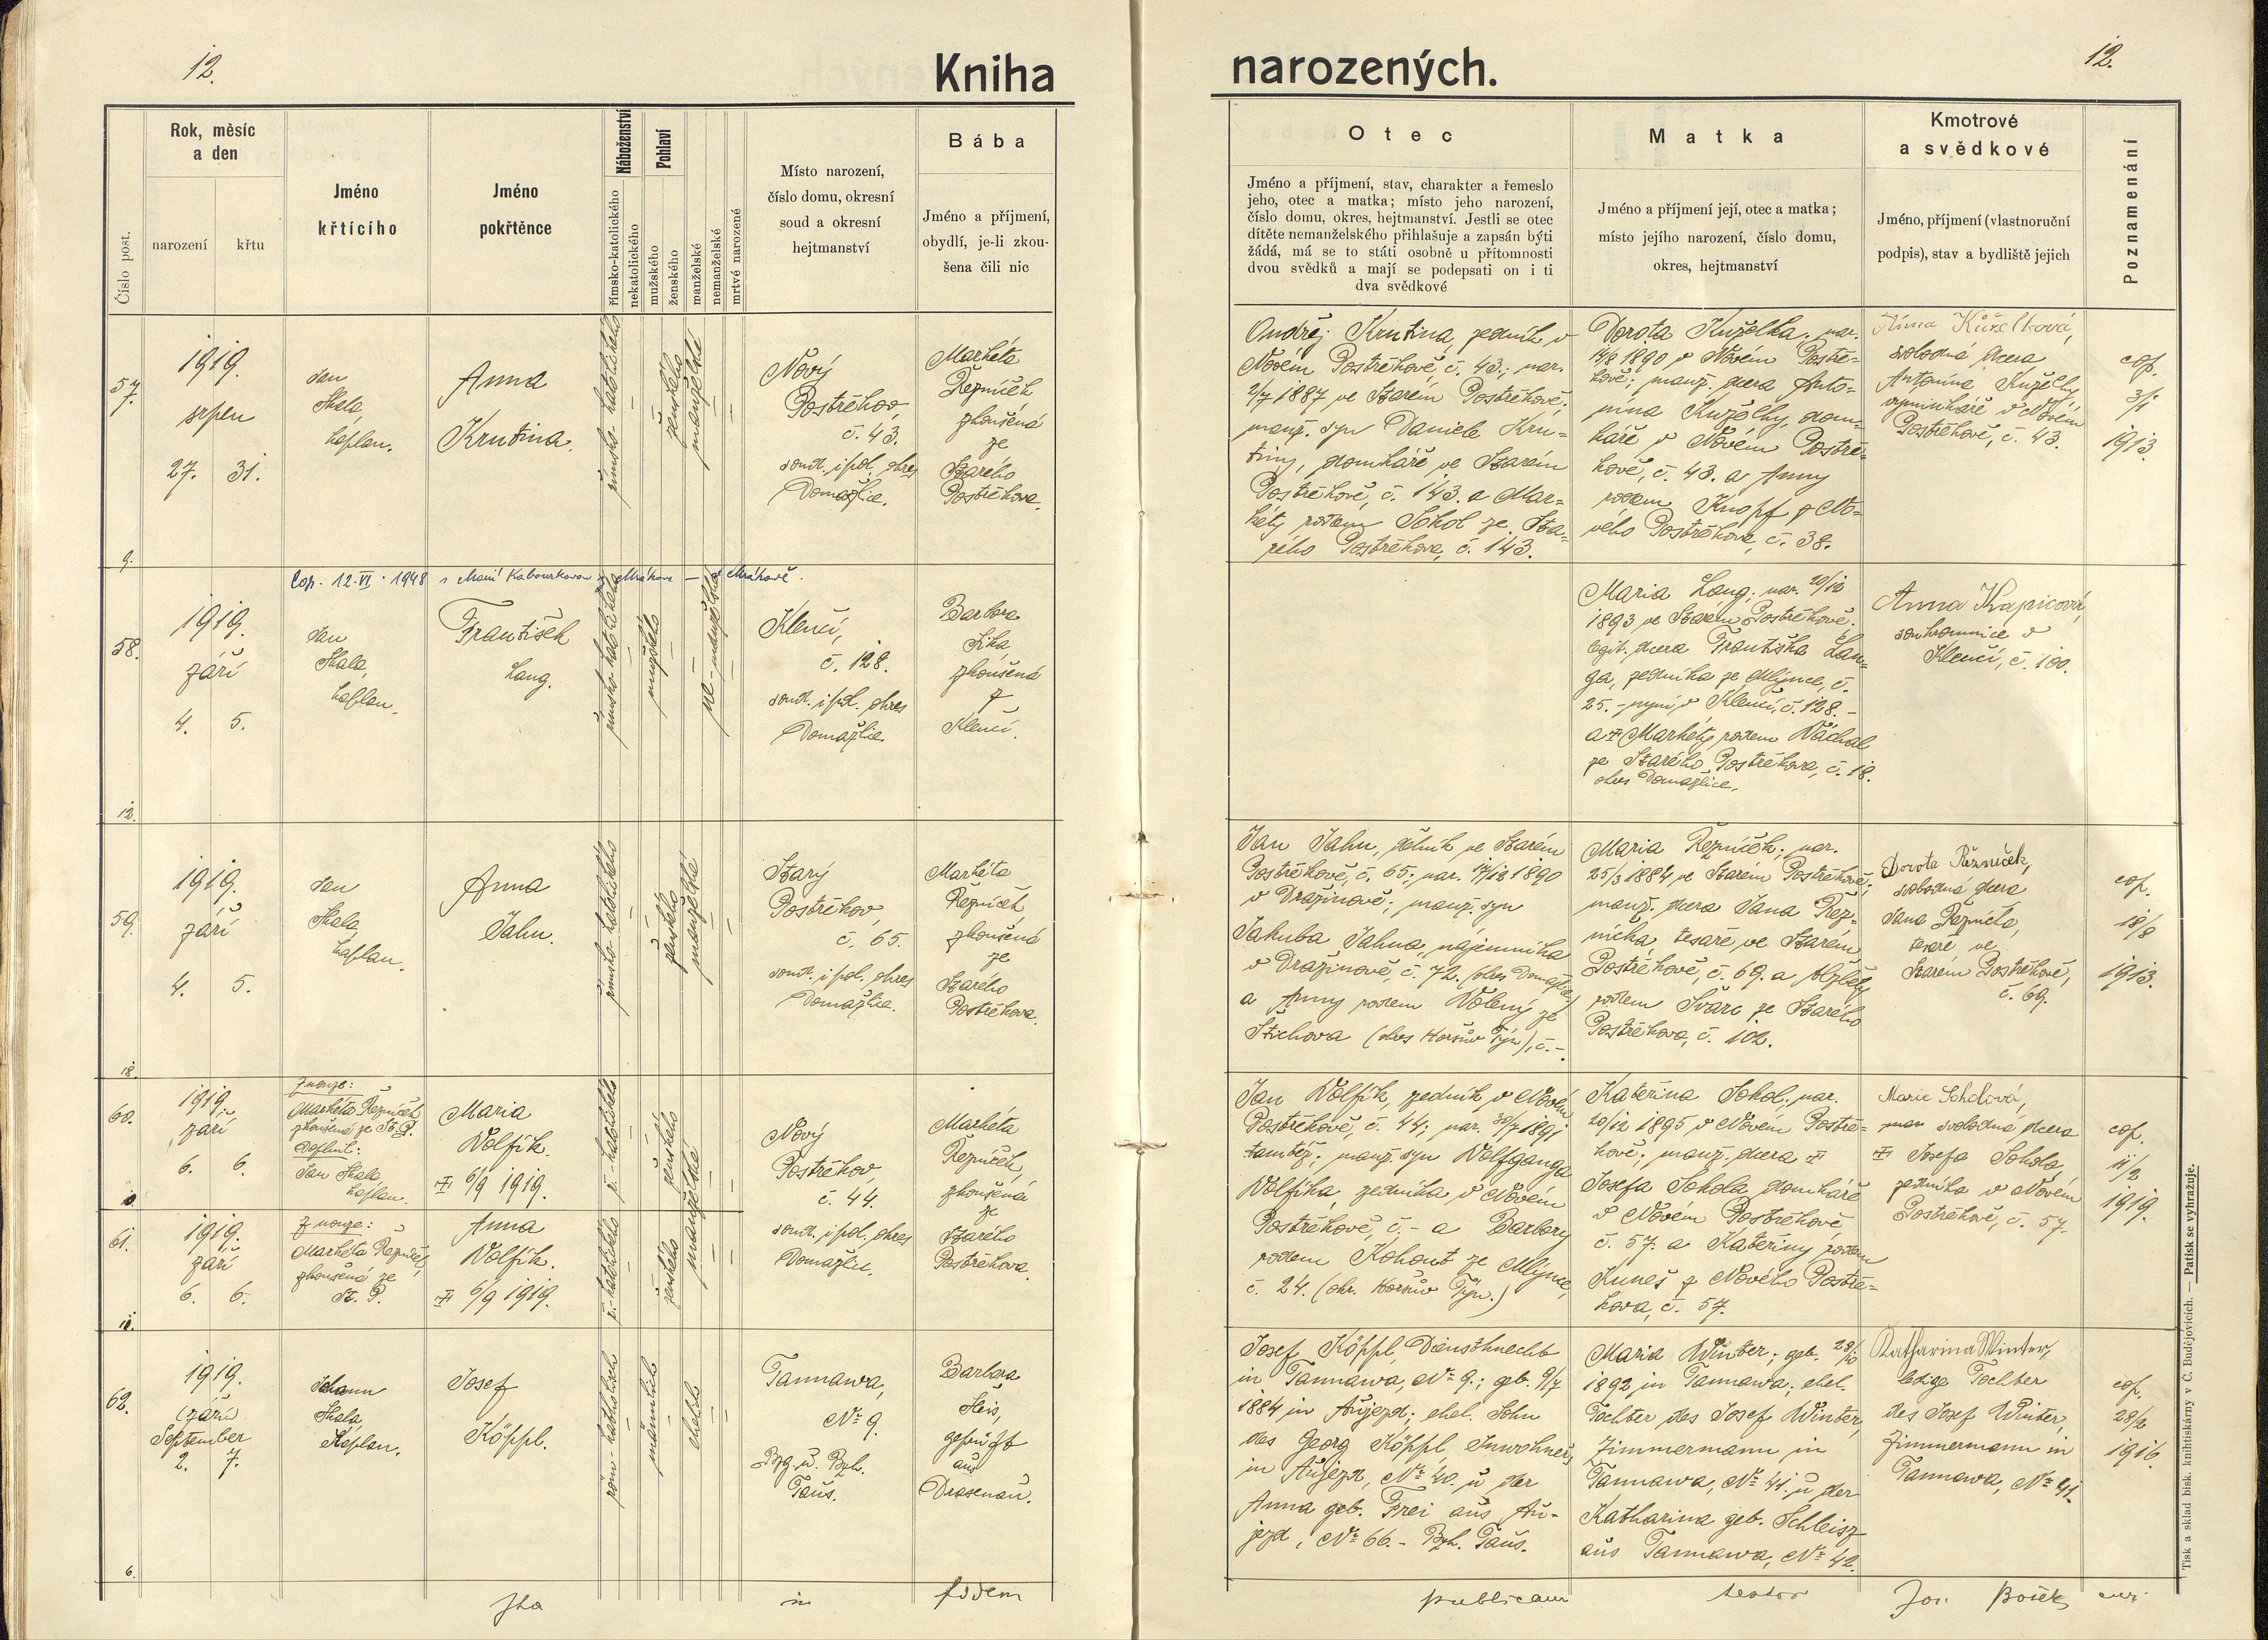 12.
Kniha
narozených.
12.
Číslo post.
Rok, měsíc
a den
narození
křtu
Jméno
křtícího
Jméno
pokřtěnce
Náboženství
římsko-katolického
nekatolického
Pohlaví
mužského
ženského
manželské
nemanželské
mrtvé narozené
Místo narození,
číslo domu, okresní
soud a okresní
hejtmanství
Bába
Jméno a příjmení,
obydlí, je-li zkou-
šena čili nic
Otec
Jméno a příjmení, stav, charakter a řemeslo
jeho, otec a matka; místo jeho narození,
číslo domu, okres, hejtmanství. Jestli se otec
dítěte nemanželského přihlašuje a zapsán býti
žádá, má se to státi osobně u přítomnosti
dvou svědků a mají se podepsati on i ti
dva svědkové
Matka
Jméno a příjmení její, otec a matka;
místo jejího narození, číslo domu,
okres, hejtmanství
Kmotrové
a svědkové
Jméno, příjmení (vlastnoruční
podpis), stav a bydliště jejich
Poznamenání
57.
1919.
srpen
27. 31.
9.
Jan
Skala,
kaplan.
Anna
Krutina.
římsko-katolického
ženského
manželské
Nový
Postřekov,
č. 43.
soud. i pol. okres
Domažlice.
Markéta
Řezníček
zkoušená
ze
Starého
Postřekova.
Ondřej Krutina, zedník v
Novém Postřekově, č. 43.; nar.
2/7 1887 ve Starém Postřekově;
manž. syn Daniele Kru-
tiny, domkáře ve Starém
Postřekově, č. 143. a Mar-
kéty rodem Sokol ze Sta-
rého Postřekova, č. 143.
Dorota Kuželka; nar.
14/8 1890 v Novém Postře-
kově; manž. dcera Anto-
nína Kuželky, dom-
káře v Novém Postře-
kově, č. 43. a Anny
rodem Knopf z No-
vého Postřekova, č. 38.
Anna Kůželková,
svobodná dcera
Antonína Kuželky,
výminkáře v Novém
Postřekově, č. 43.
cop.
3/1
1913.
Cop. 12.VI.1948 s Marií Kabourkovou z Mrákova – v Mrákově.
58.
1919.
září
4. 5.
12.
Jan
Skala,
kaplan.
František
Lang.
římsko-katolického
mužského
ne-manželské
Klenčí,
č. 128.
soud. i pol. okres
Domažlice.
Barbora
Sika,
zkoušená
z
Klenčí.
Maria Lang; nar. 20/12
1893 ve Starém Postřekově;
legit. dcera Františka Lan-
ga, zedníka ze Mlýnce, č.
25. – nyní v Klenčí, č. 128. –
a † Markéty rodem Váchal
ze Starého Postřekova, č. 18.
okres Domažlice.
Anna Kapicová,
soukromnice v
Klenčí, č. 100.
59.
1919.
září
4. 5.
18.
Jan
Skala,
kaplan.
Anna
Jahn.
římsko-katolického
ženského
manželské
Starý
Postřekov,
č. 65.
soud. i pol. okres
Domažlice.
Markéta
Řezníček,
zkoušená
ze
Starého
Postřekova.
Jan Jahn, dělník ve Starém
Postřekově, č. 65.; nar. 14/12 1890
v Dražinově; manž. syn
Jakuba Jahna, nájemníka
v Dražinově, č. 72. (okres Domažlice)
a Anny rodem Volený ze
Štichova (okres Horšův Týn), č. –.
Maria Řezníček; nar.
25/3 1884 ve Starém Postřekově;
manž. dcera Jana Řez-
níčka, tesaře ve Starém
Postřekově, č. 69. a Alžběty
rodem Švarc ze Starého
Postřekova, č. 102.
Dorota Řezníček,
svobodná dcera
Jana Řezníčka,
tesaře ve
Starém Postřekově,
č. 69.
cop.
18/8
1913.
60.
1919.
září
6. 6.
Z nouze:
Markéta Řezníček
zkoušená ze St. P.
Doplnil:
Jan Skala,
kaplan.
Maria
Volfík.
† 6/9 1919.
ř.-katolického
ženského
manželské
Nový
Postřekov,
č. 44.
soud. i pol. okres
Domažlice.
Markéta
Řezníček,
zkoušená
ze
Starého
Postřekova.
Jan Volfík, zedník v Novém
Postřekově, č. 44; nar. 30/7 1891
tamtéž; manž. syn Wolfganga
Volfíka, zedníka v Novém
Postřekově, č. – a Barbory
rodem Kohout ze Mlýnce,
č. 24. (okr. Horšův Týn.)
Kateřina Sokol, nar.
20/12 1895 v Novém Postře-
kově; manž. dcera †
Josefa Sokola domkáře
v Novém Postřekově
č. 57. a Kateřiny rodem
Kuneš z Nového Postře-
kova, č. 57.
Marie Sokolová,
svobodná dcera
† Josefa Sokola,
zedníka v Novém
Postřekově, č. 57.
cop.
11/2
1919.
61.
1919.
září
6. 6.
11.
Z nouze:
Markéta Řezníček,
zkoušená ze
St. P.
Anna
Volfík.
† 6/9 1919.
ř.-katolického
ženského
62.
1919.
(září)
September
2. 7.
6.
Johann
Skala,
Kaplan.
Josef
Köppl.
röm.-katholisch
männlich
ehelich
Tannawa,
No 9.
Bzg. u. Bzh.
Taus.
Barbara
Heis,
geprüft
aus
Drasenau.
Josef Köppl, Dienstknecht
in Tannawa, No 9.; geb. 9/7
1884 in Aujezd; ehel. Sohn
des Georg Köppl, Inwohners
in Aujezd, No 40. u. der
Anna geb. Frei aus Au-
jezd, No 66. – Bzh. Taus.
Maria Winter; geb. 28/10
1892 in Tannawa; ehel.
Tochter des Josef Winter,
Zimmermann in
Tannawa, No 41. u. der
Katharina geb. Schleisz
aus Tannawa, No 42.
Katharina Winter,
ledige Tochter
des Josef Winter,
Zimmermann in
Tannawa, No 41.
cop.
28/2
1916.
Ita in fidem publicam testor Jos. Bošek
Tisk a sklad bisk. knihtiskárny v Č. Budějovicích. — Patisk se vyhražuje.